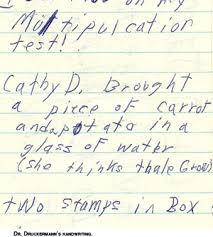 Multipulcation
test!
Cathy D. Brought
a piece of carrot
and a potato in a
glass of water
(she thinks thale Grow)
two stamps in Box
DR. DRUCKERMANN'S HANDWRITING.